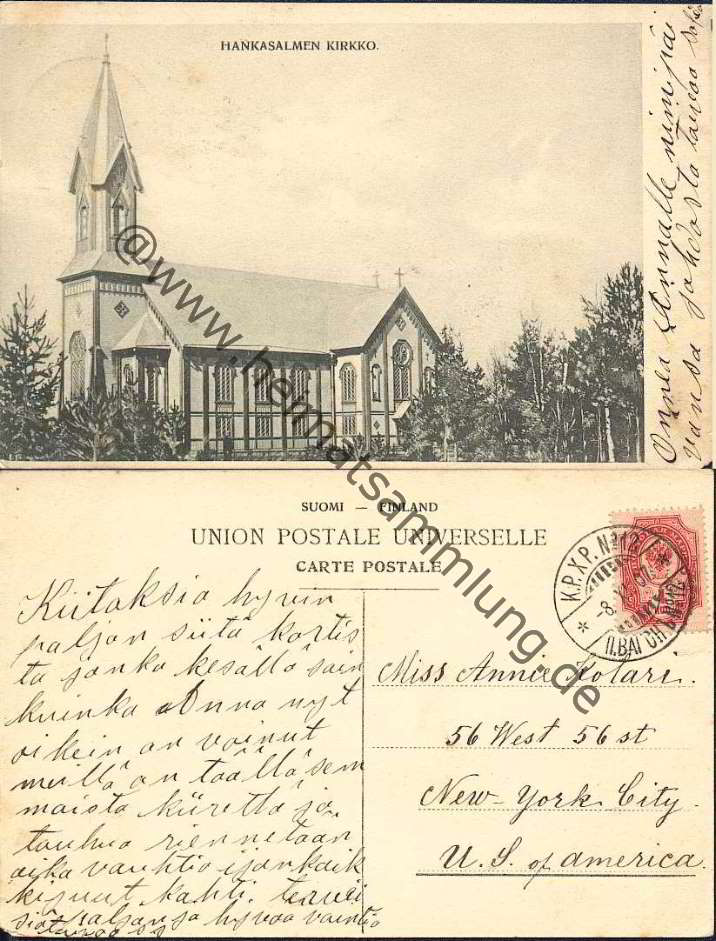 HANKASALMEN KIRKKO.
Onnea Annalle nimipä
vänsä johdosta toivoo Sofia
@www.heimatsammlung.de
SUOMI — FINLAND
UNION POSTALE UNIVERSELLE
CARTE POSTALE
K.P.X.P. No 12
Kiitoksia hyvin
paljon siitä kortis
ta jonka kesällä sain
kuinka Anna nyt
oikein on voinut
meillä on täällä sem
maista kiirettä ja
touhua riennetään
aika vauhtia ijankaik
kisuut kohti. tervei
siä paljon ja hyvää vointia
toivoo
Miss Annie Kolari.
56 West 56 st
New-York City.
U.S. of america.